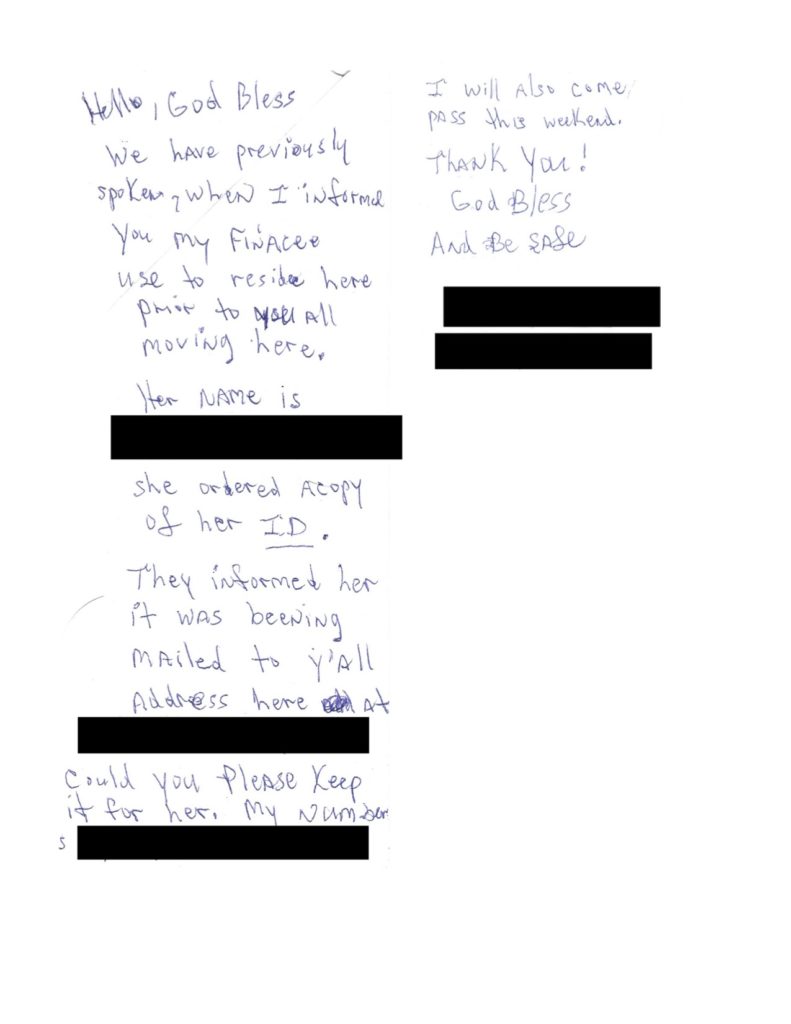 Hello, God Bless
We have previously
spoken, when I informed
you my Finacee
use to reside here
prior to you all
moving here.
Her name is
she ordered acopy
of her ID.
They informed her
it was beening
mailed to y'all
address here at
Could you please keep
it for her. My number
s
I will also come
pass this weekend.
Thank you!
God Bless
And Be Safe